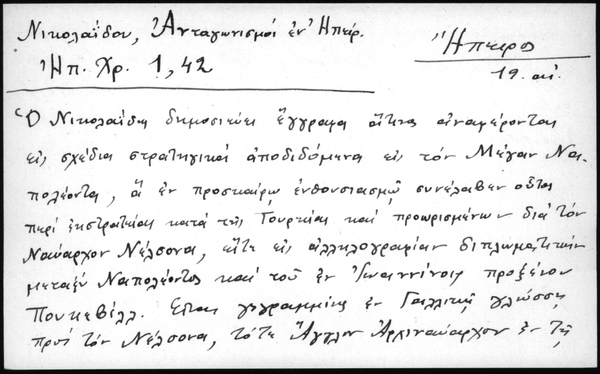 Νικολαΐδου, Ἀνταγωνισμοί ἐν Ἠπείρ.
Ἤπειρος
Ἠπ. Χρ. 1, 42
19. αἰ.
Ὁ Νικολαΐδης δημοσιεύει ἔγγραφα ἅτινα ἀναφέρονται
εἰς σχέδια στρατηγικά ἀποδιδόμενα εἰς τόν Μέγαν Να-
πολέοντα, ἅ ἐν προσκαίρῳ ἐνθουσιασμῷ συνέλαβεν οὗτος
περί ἐκστρατείας κατά τῆς Τουρκίας καί προωρισμένων διά τόν
Ναύαρχον Νέλσονα, εἴτε εἰς ἀλληλογραφίαν διπλωματικήν
μεταξύ Ναπολέοντος καί τοῦ ἐν Ἰωαννίνοις προξένου
Πουκεβίλλ. Εἶναι γεγραμμένα ἐν Γαλλικῇ γλώσσῃ
πρός τόν Νέλσονα, τότε Ἄγγλον Ἀρχιναύαρχον ἐν τῇ